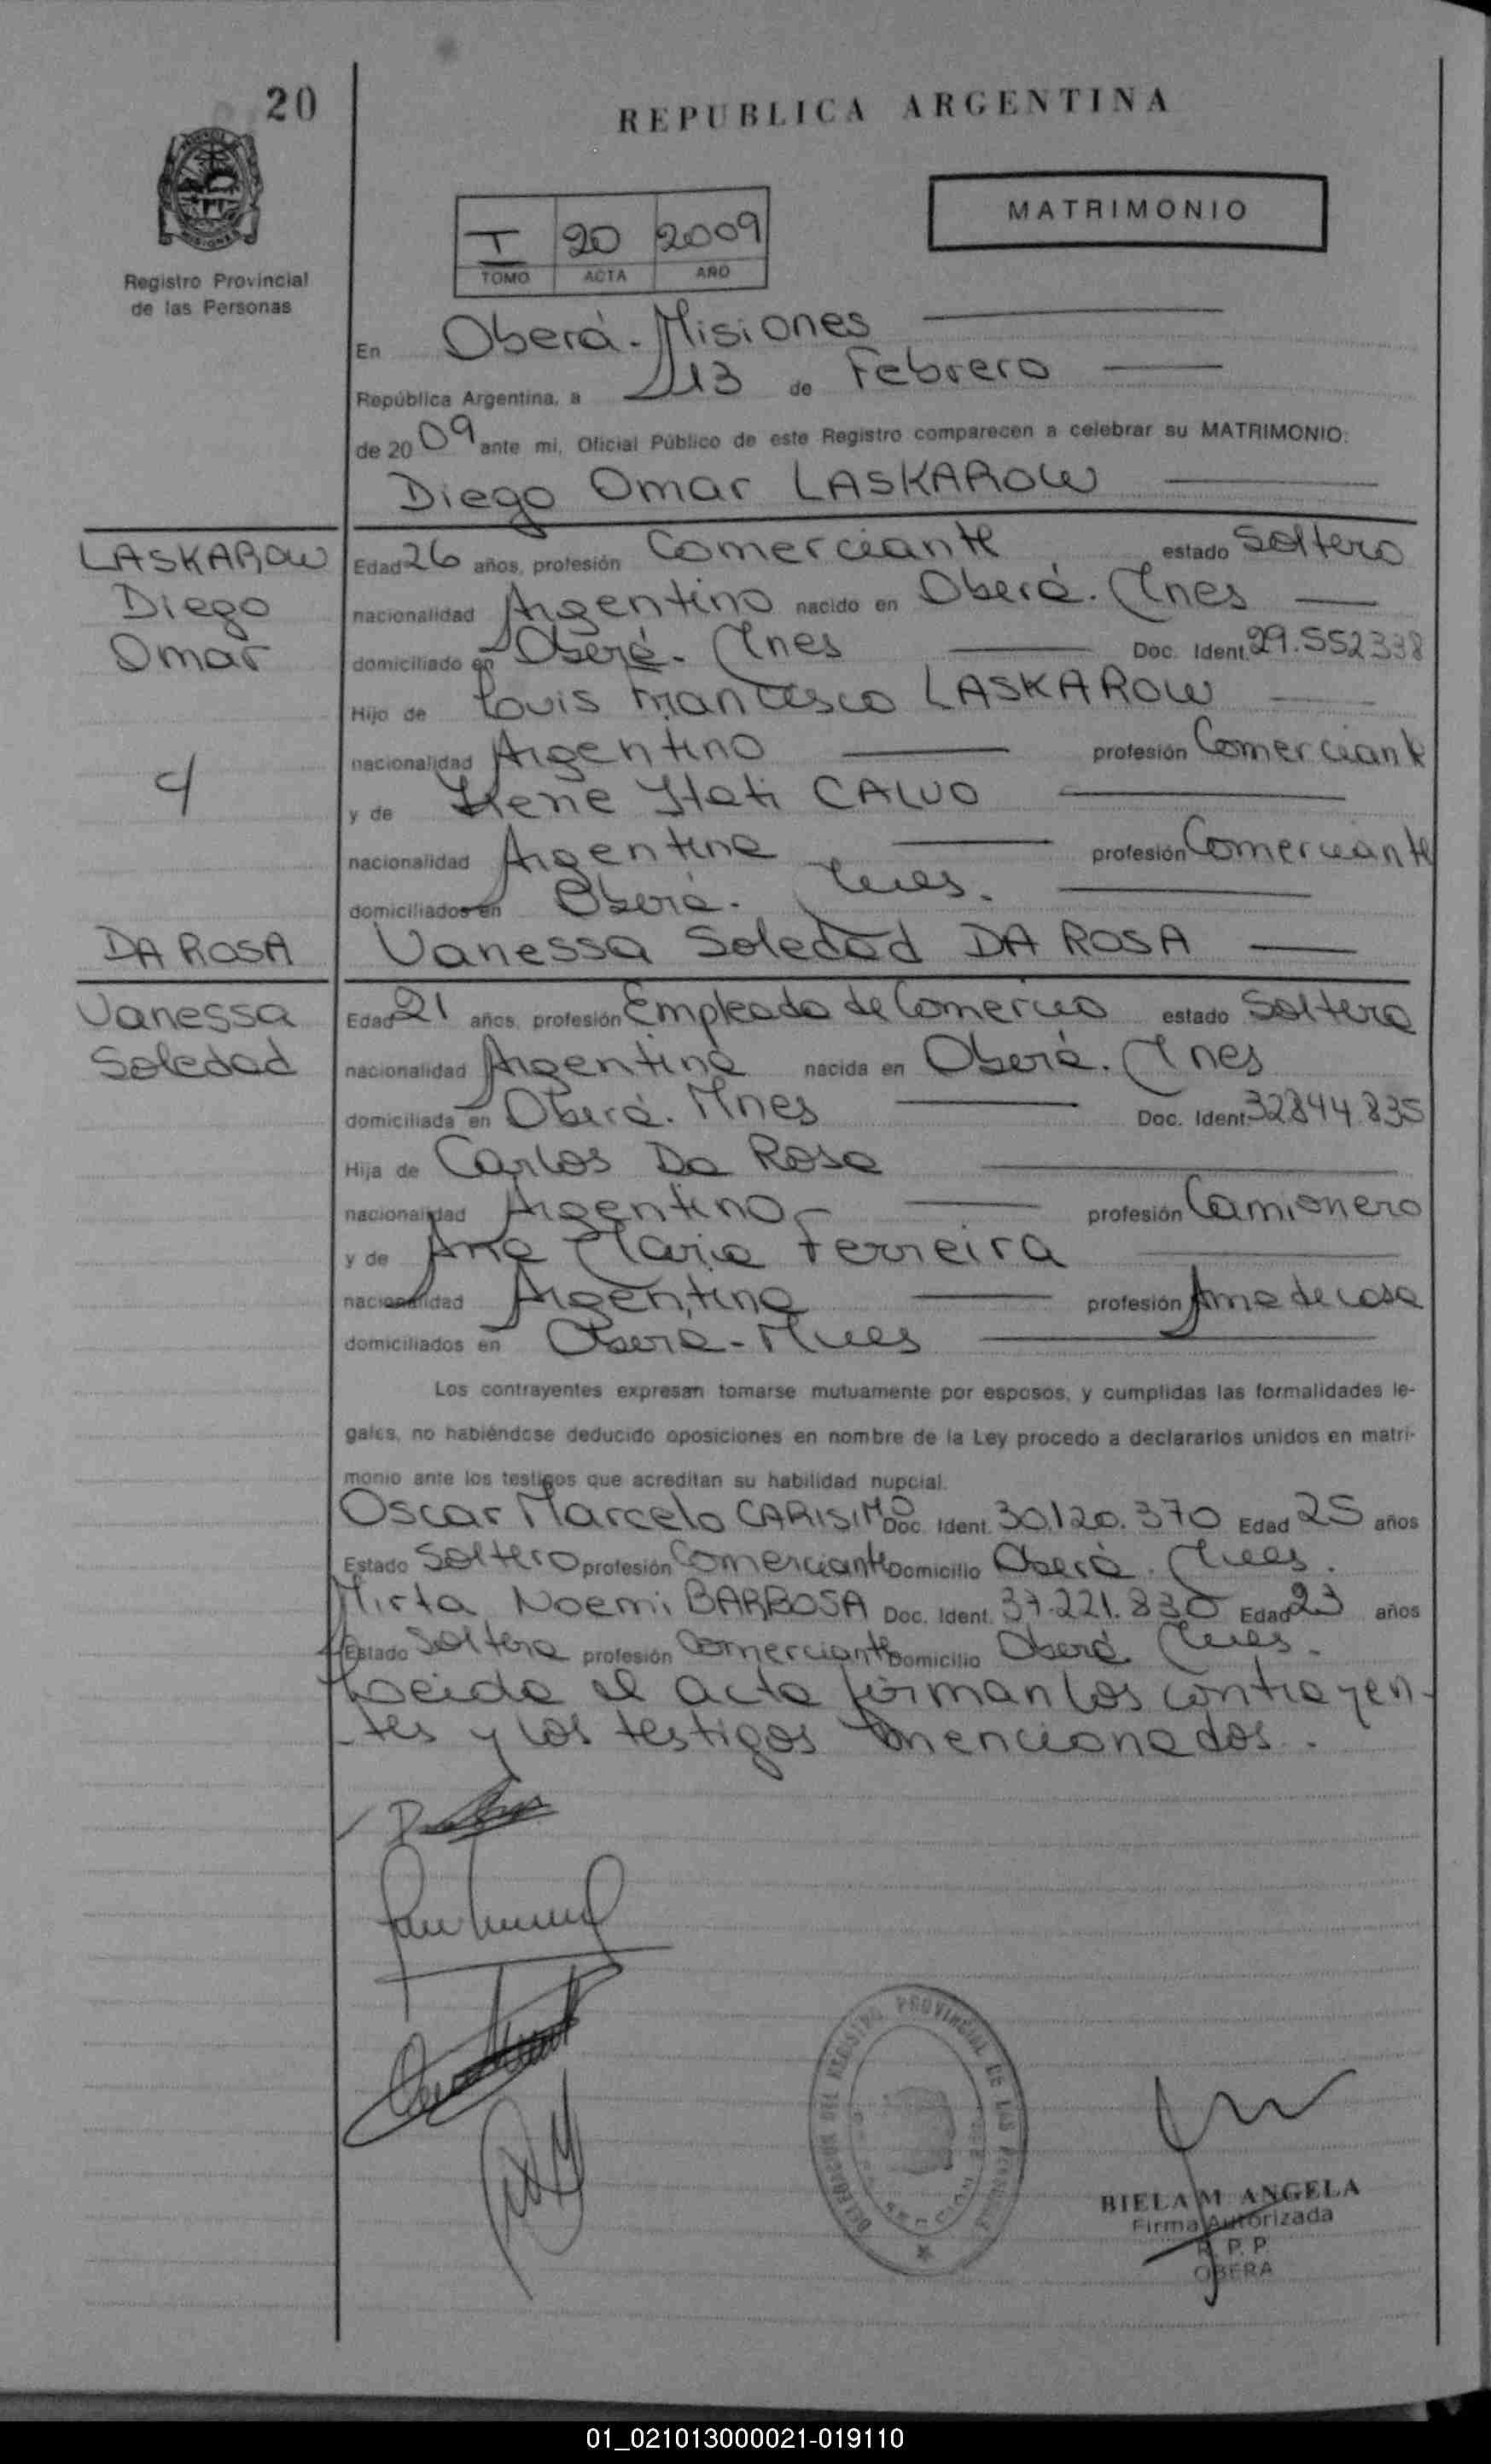 20
REPUBLICA ARGENTINA
MATRIMONIO
I 20 2009
TOMO ACTA AÑO
Registro Provincial
de las Personas
En Oberá - Misiones
República Argentina, a 13 de Febrero
de 2009 ante mi, Oficial Público de este Registro comparecen a celebrar su MATRIMONIO:
Diego Omar LASKAROW
LASKAROW
Diego
Omar
Edad 26 años, profesión Comerciante estado Soltero
nacionalidad Argentino nacido en Oberá. Mnes
domiciliado en Oberá - Mnes Doc. Ident. 29.552338
Hijo de Louis Francisco LASKAROW
nacionalidad Argentino profesión Comerciante
y de Irene Itati CALVO
nacionalidad Argentina profesión Comerciante
domiciliados en Oberá. Mnes.
Vanessa Soledad DA ROSA
DA ROSA
Vanessa
Soledad
Edad 21 años, profesión Empleada de Comercio estado Soltera
nacionalidad Argentina nacida en Oberá. Mnes
domiciliada en Oberá. Mnes Doc. Ident. 32844.835
Hija de Carlos Da Rosa
nacionalidad Argentino profesión Camionero
y de Ana Maria Ferreira
nacionalidad Argentina profesión Ama de casa
domiciliados en Oberá - Mnes
Los contrayentes expresan tomarse mutuamente por esposos, y cumplidas las formalidades le-
gales, no habiéndose deducido oposiciones en nombre de la Ley procedo a declararlos unidos en matri-
monio ante los testigos que acreditan su habilidad nupcial.
Oscar Marcelo CARISIMO Doc. Ident. 30.120.370 Edad 25 años
Estado Soltero profesión Comerciante Domicilio Oberá. Mnes.
Mirta Noemi BARBOSA Doc. Ident. 37.221.830 Edad 23 años
Estado Soltera profesión Comerciante Domicilio Oberá. Mnes.
Leida el acta firman los contrayen-
tes y los testigos mencionados.
DELEGACION DEL REGISTRO PROVINCIAL DE LAS PERSONAS
BIELA M ANGELA
Firma Autorizada
R. P. P.
OBERA
01_021013000021-019110